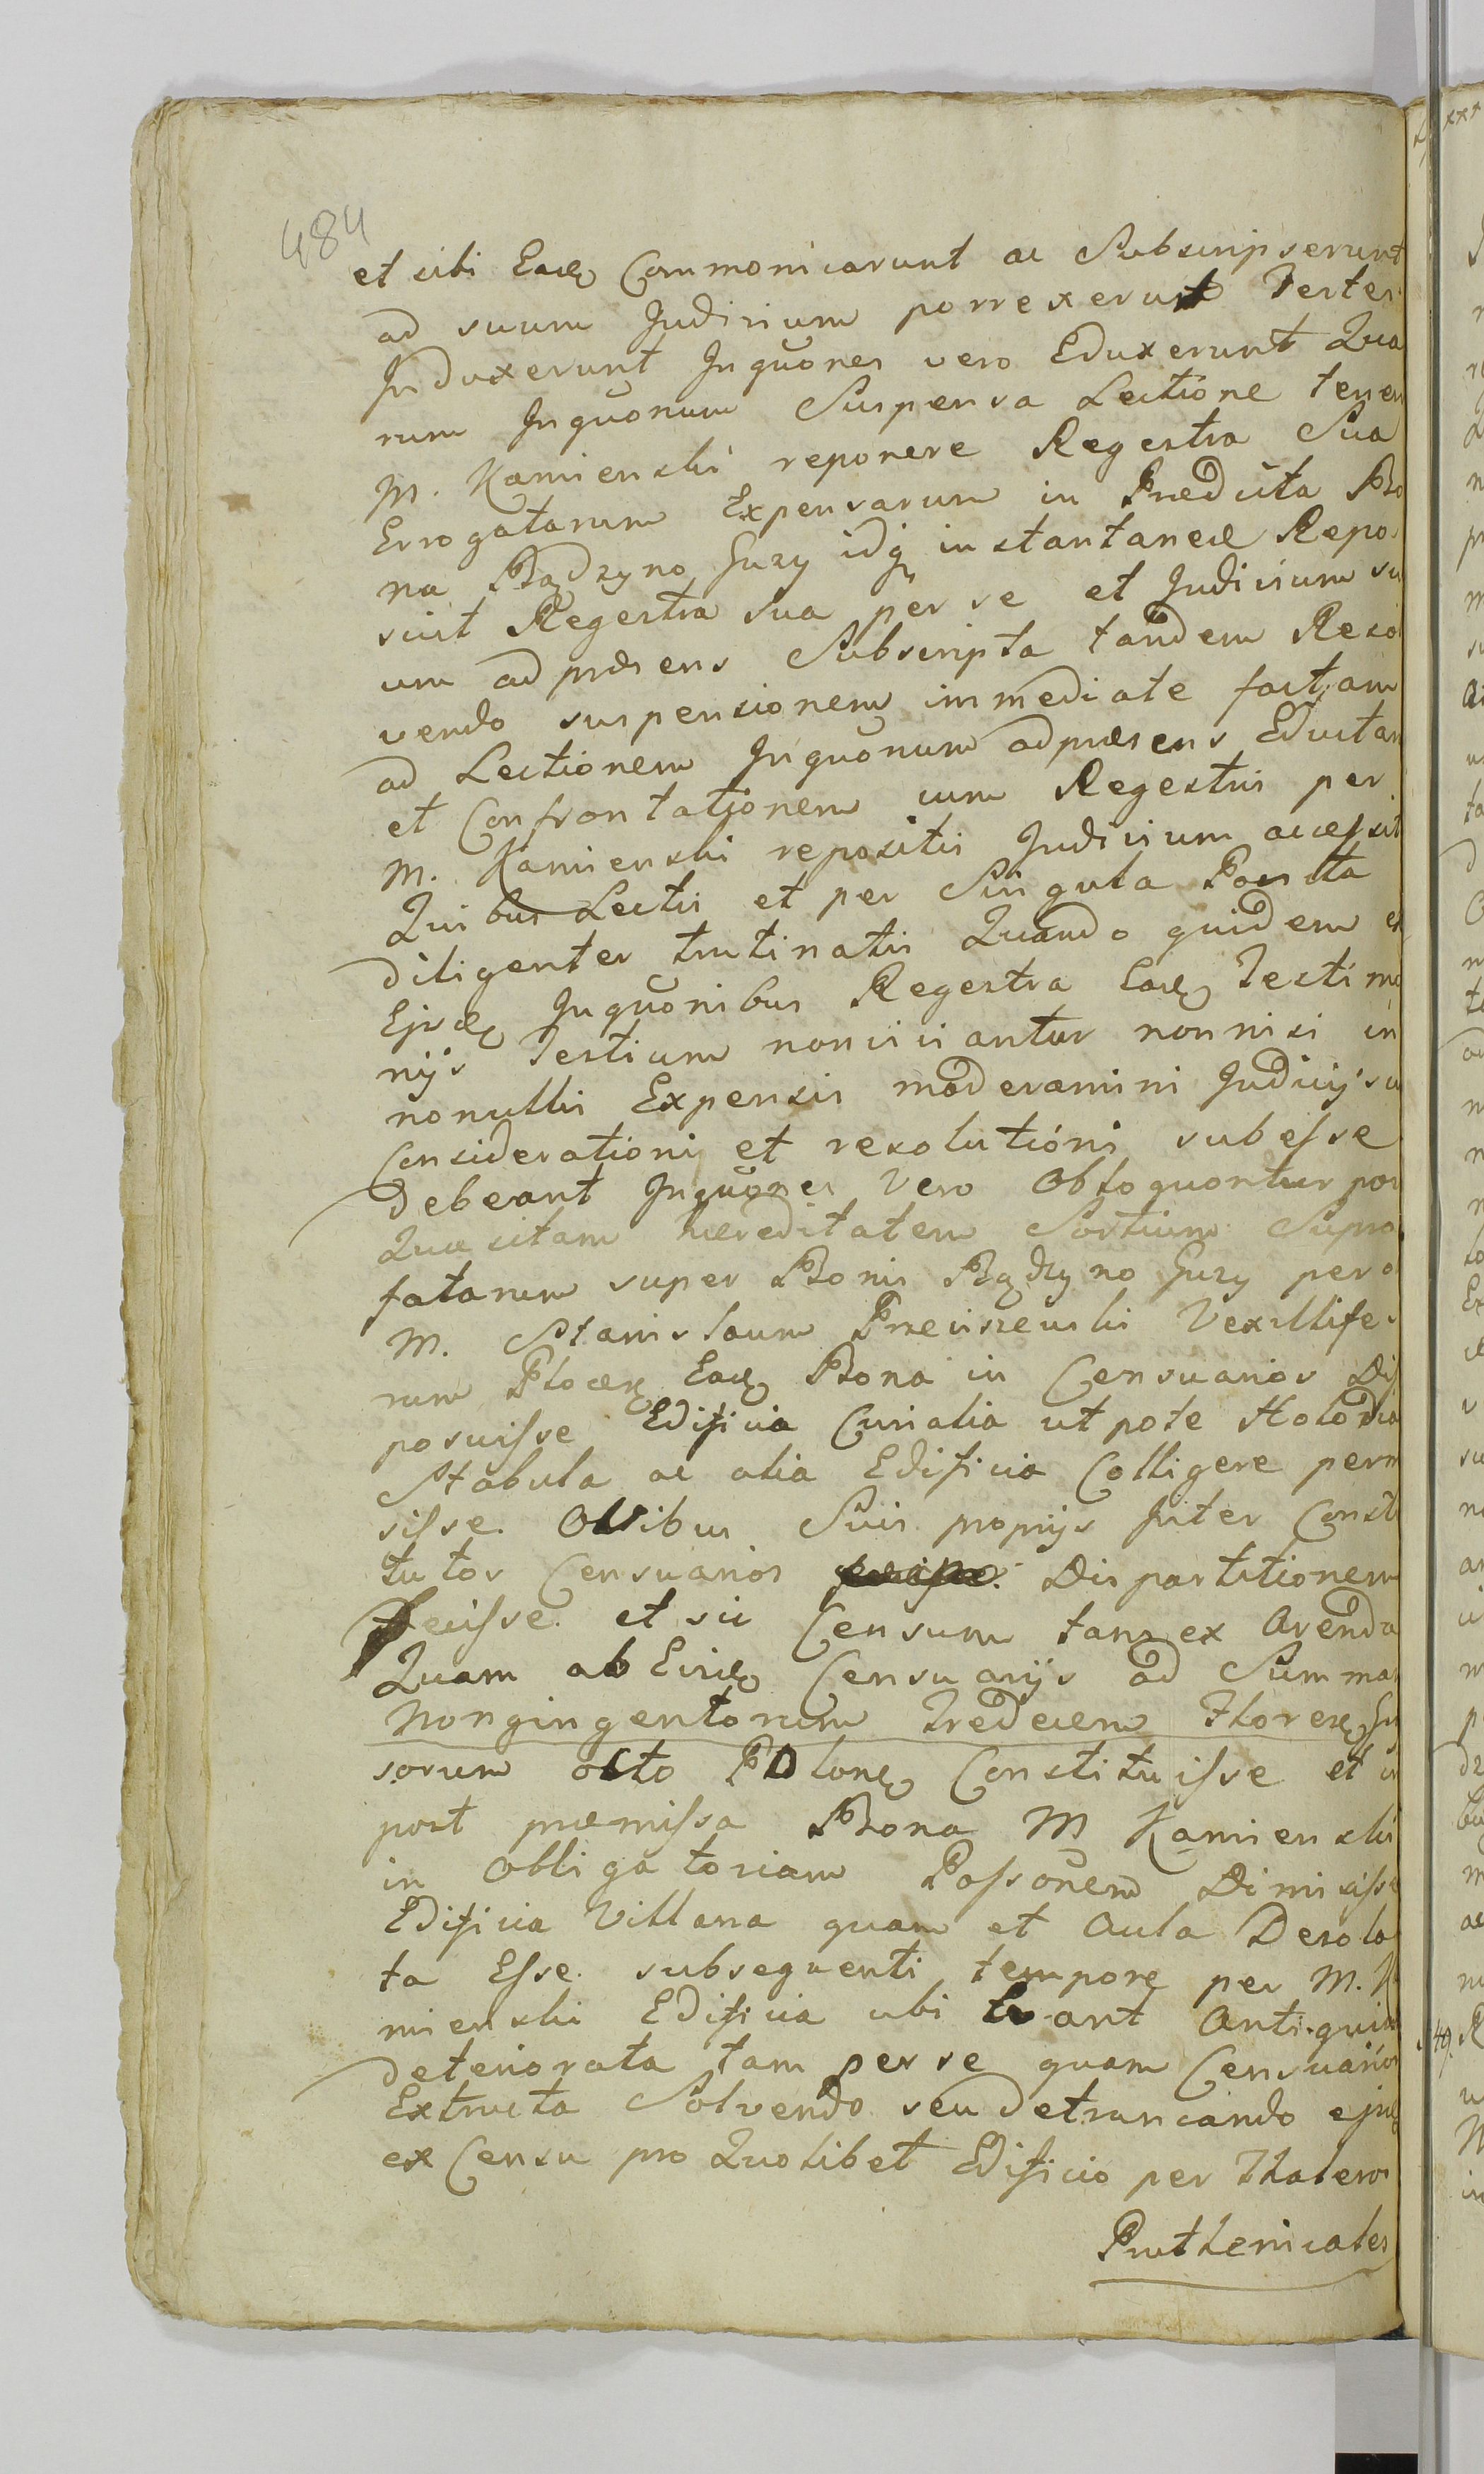 484
et sibi Easq Commonicarunt ac Subscripserunt
ad suum Judicium porrexerunt Testes
Induxerunt Inquones vero Eduxerunt Qua
rum Inquonum Suspensa Lectione tenen
M. Kamienski reponere Regestra Sua
Errogatarum Expensarum in Prædicta Bo
na Bądzyno Guzy idq instantanee Repo
suit Regestra sua per se et Judicium su
um ad præsens Subscripta tandem Resol
vendo suspensionem immediate factam
ad Lectionem Inquonum ad præsens Eductar
et Confrontationem cum Regestris per
M. Kamienski repositis Judicium accessit
Quibus Lectis et per Singula Puncta
diligenter trutinatis Quando quidem ex
Ejsdq Inquonibus Regestra Easq Testimo
nijs Testium non vitiantur nonnisi in
nonullis Expensis moderamini Judicij su
Considerationi et resolutioni subesse
debeant Inquones Vero Obloquontur post
Quæsitam hæreditatem Sortium Supra
fatarum super Bonis Bądzyno Guzy per o
M. Stanislaum Przeciszewski Vexillife
rum Plocen Eadq Bona in Censuarios Dis
posuisse Edificia Curialia utpote Stodoła
Stabula ac alia Edificia Colligere permi
sisse. Ovibus Suis proprijs Inter Consti
tutos Censuarios Dispartitionem
Fecisse. et sic Censum tam ex Arenda
Quam ab Eisdq Censuarijs ad Summam
Nongingentorum Tredecem Floren Gr
sorum octo Polonq Constituisse et in
post præmissa Bona M Kamienski
in Obligatoriam Possonem Dimisisse
Edificia Villana quam et Aula Desola
ta Esse. subsequenti tempore per M. Ka
mienski Edificia ubi Erant Antiquitus
deteriorata tam per se quam Censuarios
Extructa Solvendo seu detruncando ejsdq
ex Censu pro Quolibet Edificio per Thaleros
Pruthenicales